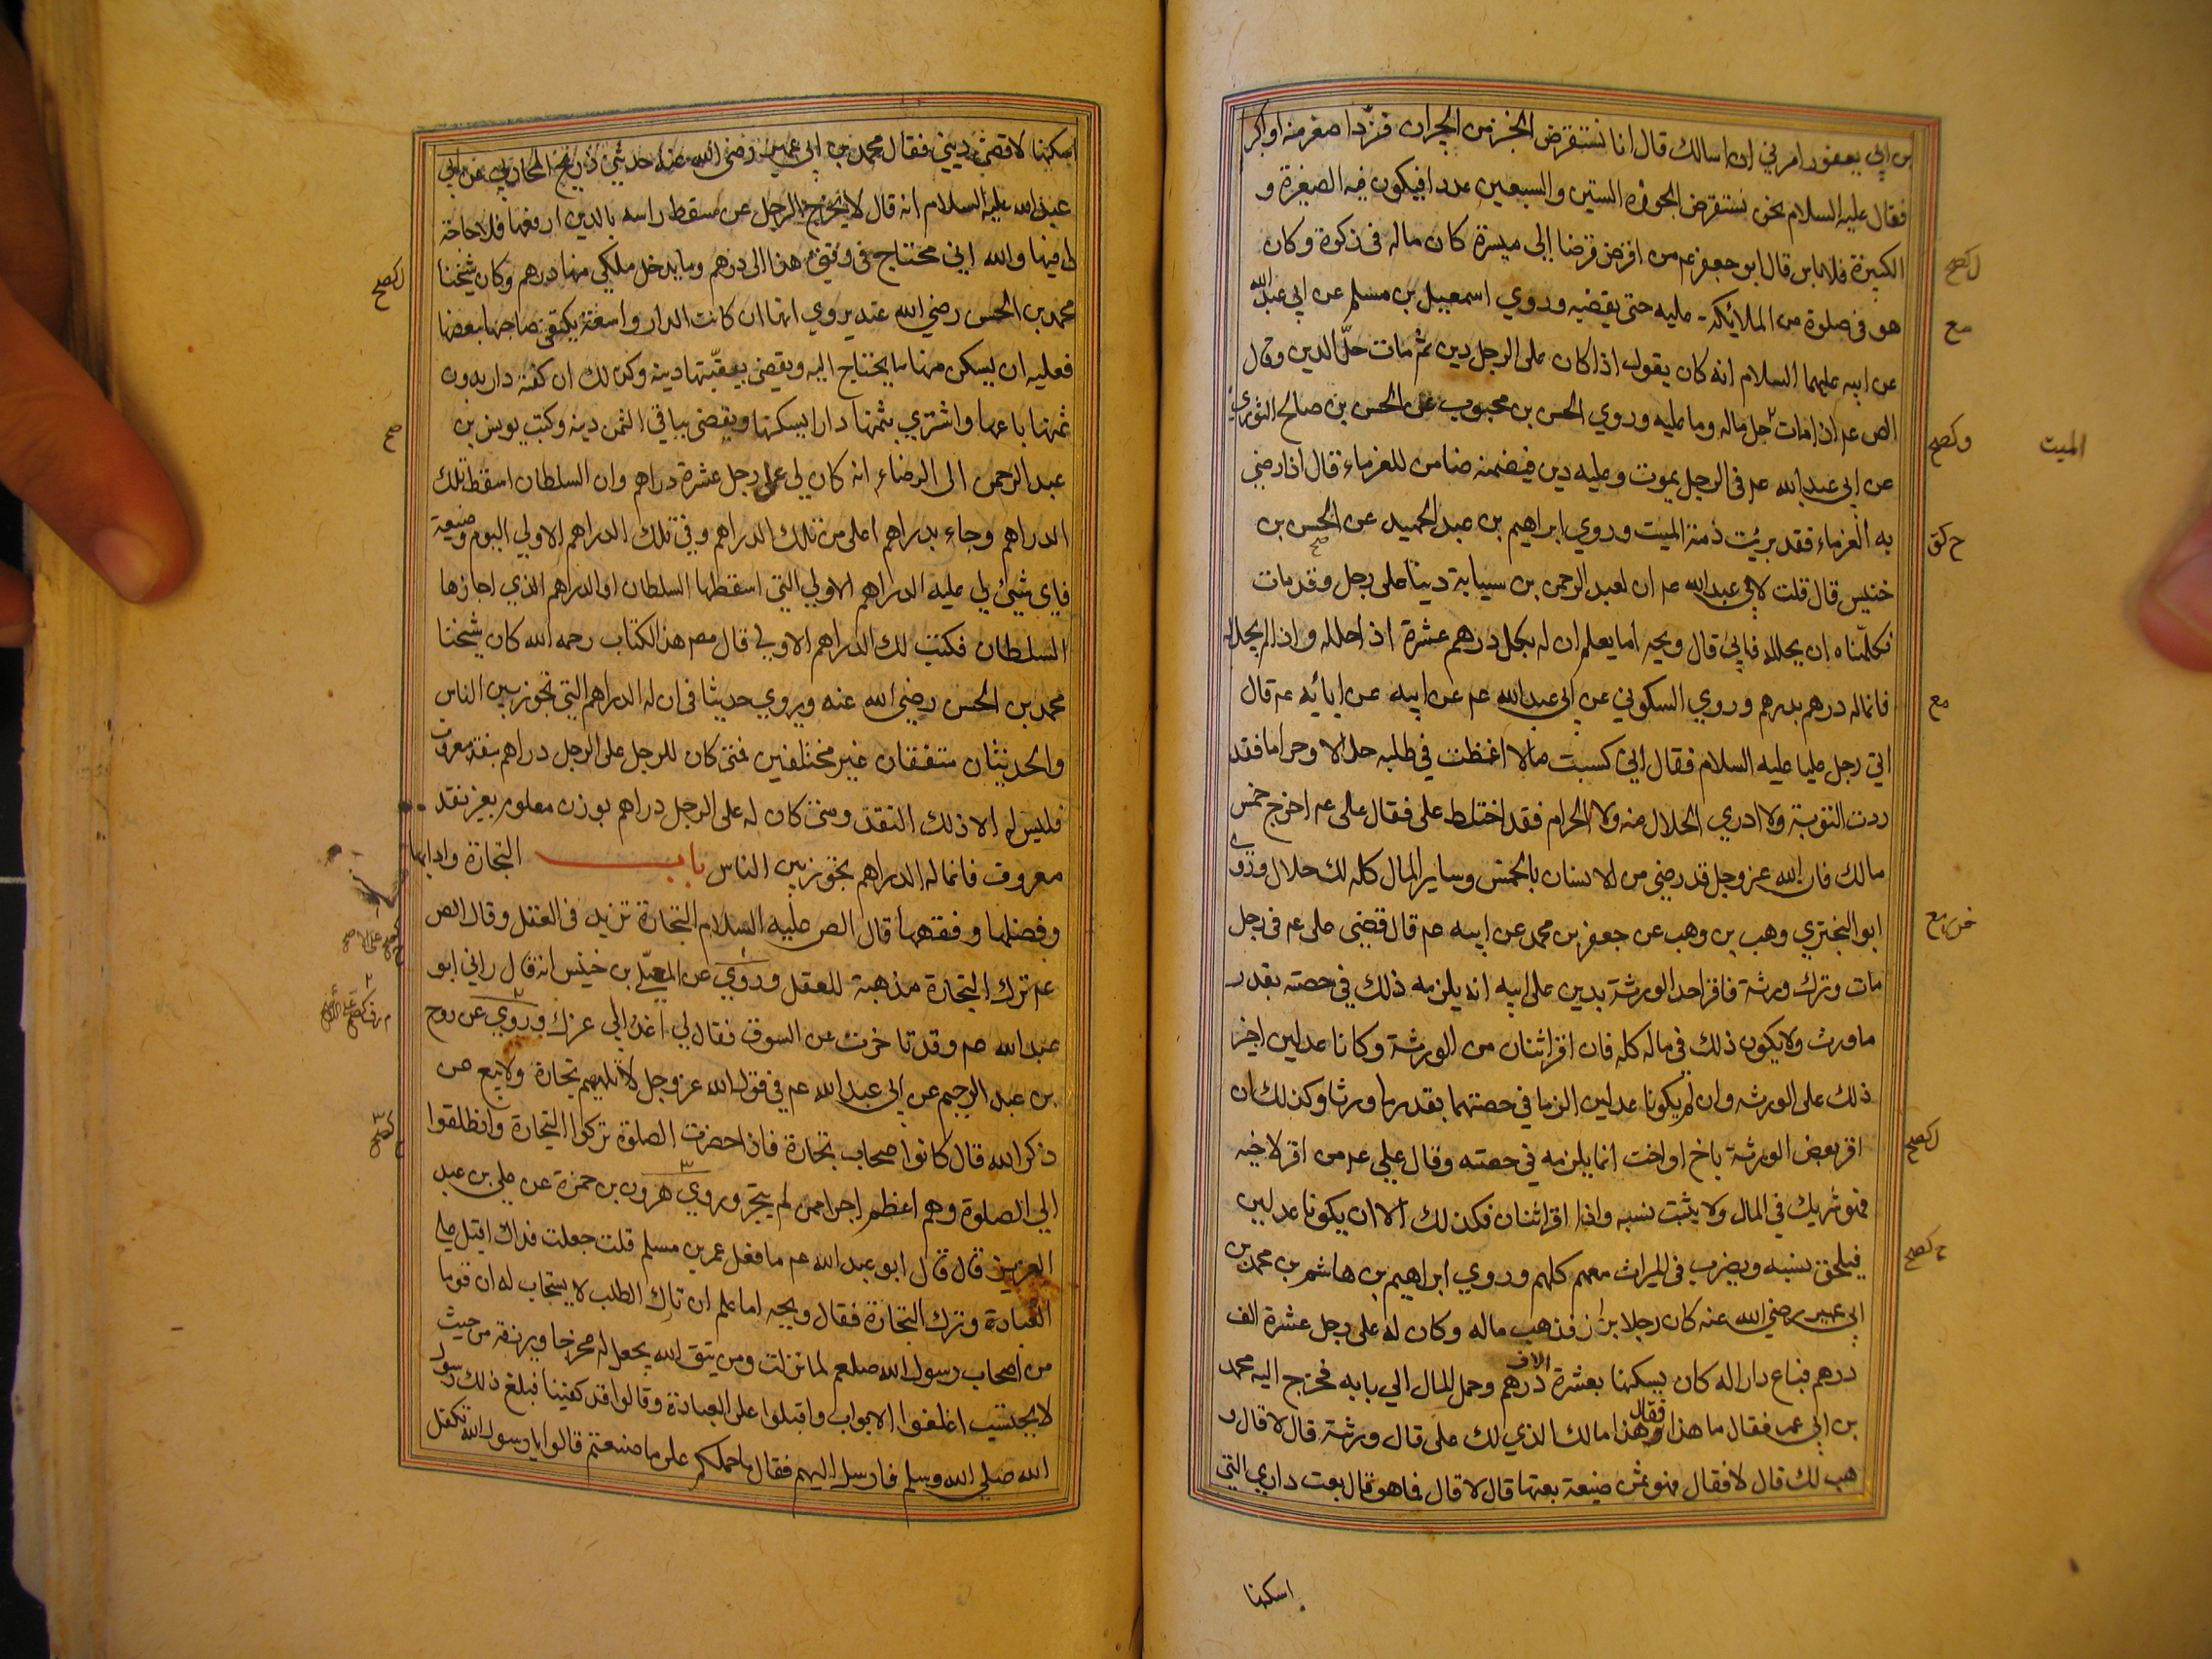 بن ابي يعفور امرني ان اسالك قال انا نستقرض الخبز من الجيران فنردّ اصغر منه او اكبر
فقال عليه السلام نحن نستقرض الجوزه الستين والسبعين عددا فيكون فيه الصغيرة و
الكبيرة فلا باس قال ابو جعفر عم من اقرض قرضا إلى ميسرة كان ماله في زكوة وكان
هو في صلوة من الملائكة عليه حتى يقضيه وروي اسمعيل بن مسلم عن ابي عبد الله
عن ابيه عليهما السلام انه كان يقول اذا كان على الرجل دين ثم مات حلّ الدين وقال
الص عم اذا مات رجل ماله وما عليه وروي الحسن بن محبوب عن الحسن بن صالح الثوري
عن ابي عبد الله عم في الرجل يموت وعليه دين فيضمنه ضامن للغرماء قال اذا رضي
به الغرماء فقد برئت ذمة الميت وروي ابراهيم بن عبد الحميد عن الحسن بن
خنيس قال قلت لابي عبد الله عم ان لعبد الرحمن بن سيابة دينا على رجل وقد مات
فكلّمناه ان يحلله فابى قال ويحه اما يعلم ان له بكل درهم عشرة اذا حلله واذا لم يحلله
فانما له درهم بدرهم وروي السكوني عن ابي عبد الله عم عن ابيه عن ابائه عم قال
اتي رجل عليا عليه السلام فقال اني كسبت مالا اغمظت في طلبه حلالا وحراما فقد
ردت التوبة ولا ادري الحلال منه ولا الحرام فقد اختلط على فقال على عم اخرج خمس
مالك فان الله عز وجل قد رضي من الانسان بالخمس وساير المال كله لك حلال وروى
ابو البختري وهب بن وهب عن جعفر بن محمد عن ابيه عم قال قضى على عم في رجل
مات وترك ورثة فاقر احد الورثة بدين على ابيه انه يلزمه ذلك في حصته بقدر
ما ورث ولا يكون ذلك في ماله كله فان اقر اثنان من الورثة وكانا عدلين اجيز
ذلك على الورثه وان لم يكونا عدلين الزما في حصتهما بقدر ما ورثا وكذلك ان
اقر بعض الورثة باخ او اخت انما يلزمه في حصته وقال علي عم من اقر لاخيه
فهو شريك في المال ولا يثبت نسبه واذا اقر اثنان فكذلك الا ان يكونا عدلين
فيلحق نسبه ويضرب في الميراث معهم كلهم وروي ابراهيم بن هاشم بن محمد بن
ابي عمير رضي الله عنه كان رجلا بزازا فذهب ماله وكان له على رجل عشرة الف
درهم فباع دارا له كان يسكنها بعشرة الاف درهم وحمل المال الي بابه فخرج اليه محمد
بن ابي عمير فقال ما هذا فقال هذا مالك الذي لك على قال ورثة قال لا قال و
هب لك قال لا فقال هو ثمن ضيعة بعتها قال لا قال فما هو قال بعت داري التي
لكصح
مع
وكصح
الميت
ح كق
صح
مع
لكصح
ح كصح
اسكنها
اسكنها لاقضي ديني فقال محمد بن ابي عمير رضي الله عنه حدثني ذريح المحاربي عن ابي
عبد الله عليه السلام انه قال لا يخرج الرجل عن مسقط راسه بالدين ارفعها فلا حاجة
لى فيها والله اني محتاج في وقتي هذا الى درهم وما يدخل ملكي منها درهم وكان شيخنا
محمد بن الحسن رضي الله عنه يروي انها ان كانت الدار واسعة يكتفى صاحبها ببعضها
فعليه ان يسكن منها ما يحتاج اليه ويقضي ببقيّتها دينه وكذلك ان كفته دار بدون
ثمنها باعها واشتري بثمنها دارا يسكنها ويقضى بباقي الثمن دينه وكتب يونس بن
عبد الرحمن الى الرضاء عم انه كان لي على رجل عشرة دراهم وان السلطان اسقط تلك
الدراهم وجاء بدراهم اعلى من تلك الدراهم وفي تلك الدراهم الاولي اليوم وضيعة
فاى شيئ لي عليه الدراهم الاولي التي اسقطها السلطان او الدراهم الذي اجازها
السلطان فكتب لك الدراهم الاولي قال مصر هذا الكتاب رحمه الله كان شيخنا
محمد بن الحسن رضي الله عنه ويروي حديثا في ان له الدراهم التي تجوز بين الناس
والحديثان متفقان غير مختلفين فمتى كان للرجل على الرجل دراهم بنقد معروف
فليس له الا ذلك النقد ومتى كان له على الرجل دراهم بوزن معلوم بغير نقد
معروف فانما له الدراهم تجوز بين الناس باب التجارة وادابها
وفضلها وفقهها قال الص عليه السلام التجارة تزيد في العقل وقال الص
عم ترك التجارة مذهبة للعقل وروي عن المعلّى بن خنيس انه قال راني ابو
عبد الله عم وقد تاخرت عن السوق فقال لي اغد الي عزك وروي عن روح
بن عبد الرحيم عن ابي عبد الله عم في قول الله عز وجل لا تلهيهم تجارة ولا بيع عن
ذكر الله قال كانوا اصحاب تجارة فاذا حضرت الصلوة تركوا التجارة وانطلقوا
الي الصلوة وهم اعظم اجرا ممن لم يتجر وروي هرون بن حمزة عن علي بن عبد
العزيز قال قال ابو عبد الله عم ما فعل عمر بن مسلم قلت جعلت فداك اقبل علي
العبادة وترك التجارة فقال ويحه اما علم ان تارك الطلب لا يستجاب له ان قوما
من اصحاب رسول الله صلعم لما نزلت ومن يتق الله يجعل له مخرجا ويرزقه من حيث
لا يحتسب اغلقوا الابواب واقبلوا على العبادة وقالوا قد كفينا فبلغ ذلك رسول
الله صلى الله وسلم فارسل اليهم فقال ما حملكم على ما صنعتم قالوا يا رسول الله تكفل
لكصح
صح